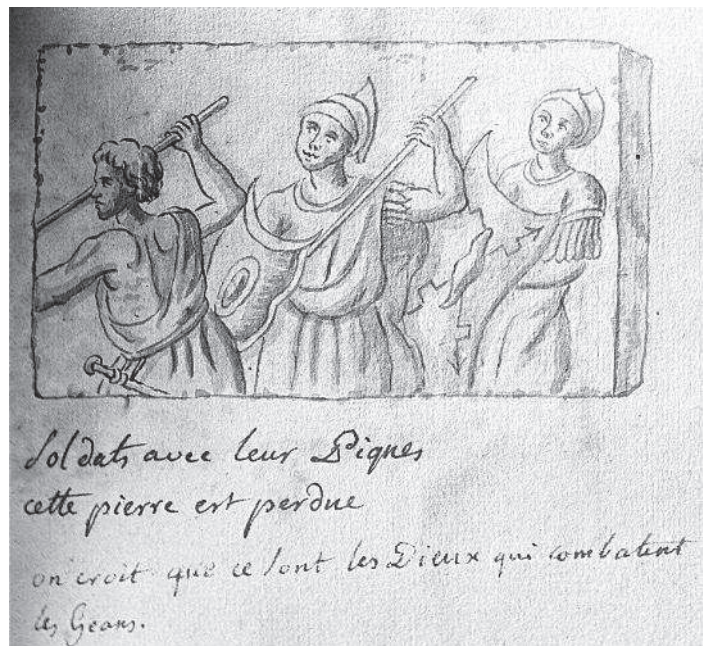 Soldats avec leur Piques
cette pierre est perdue
on croit que ce sont les Dieux qui combatent
les Geans.